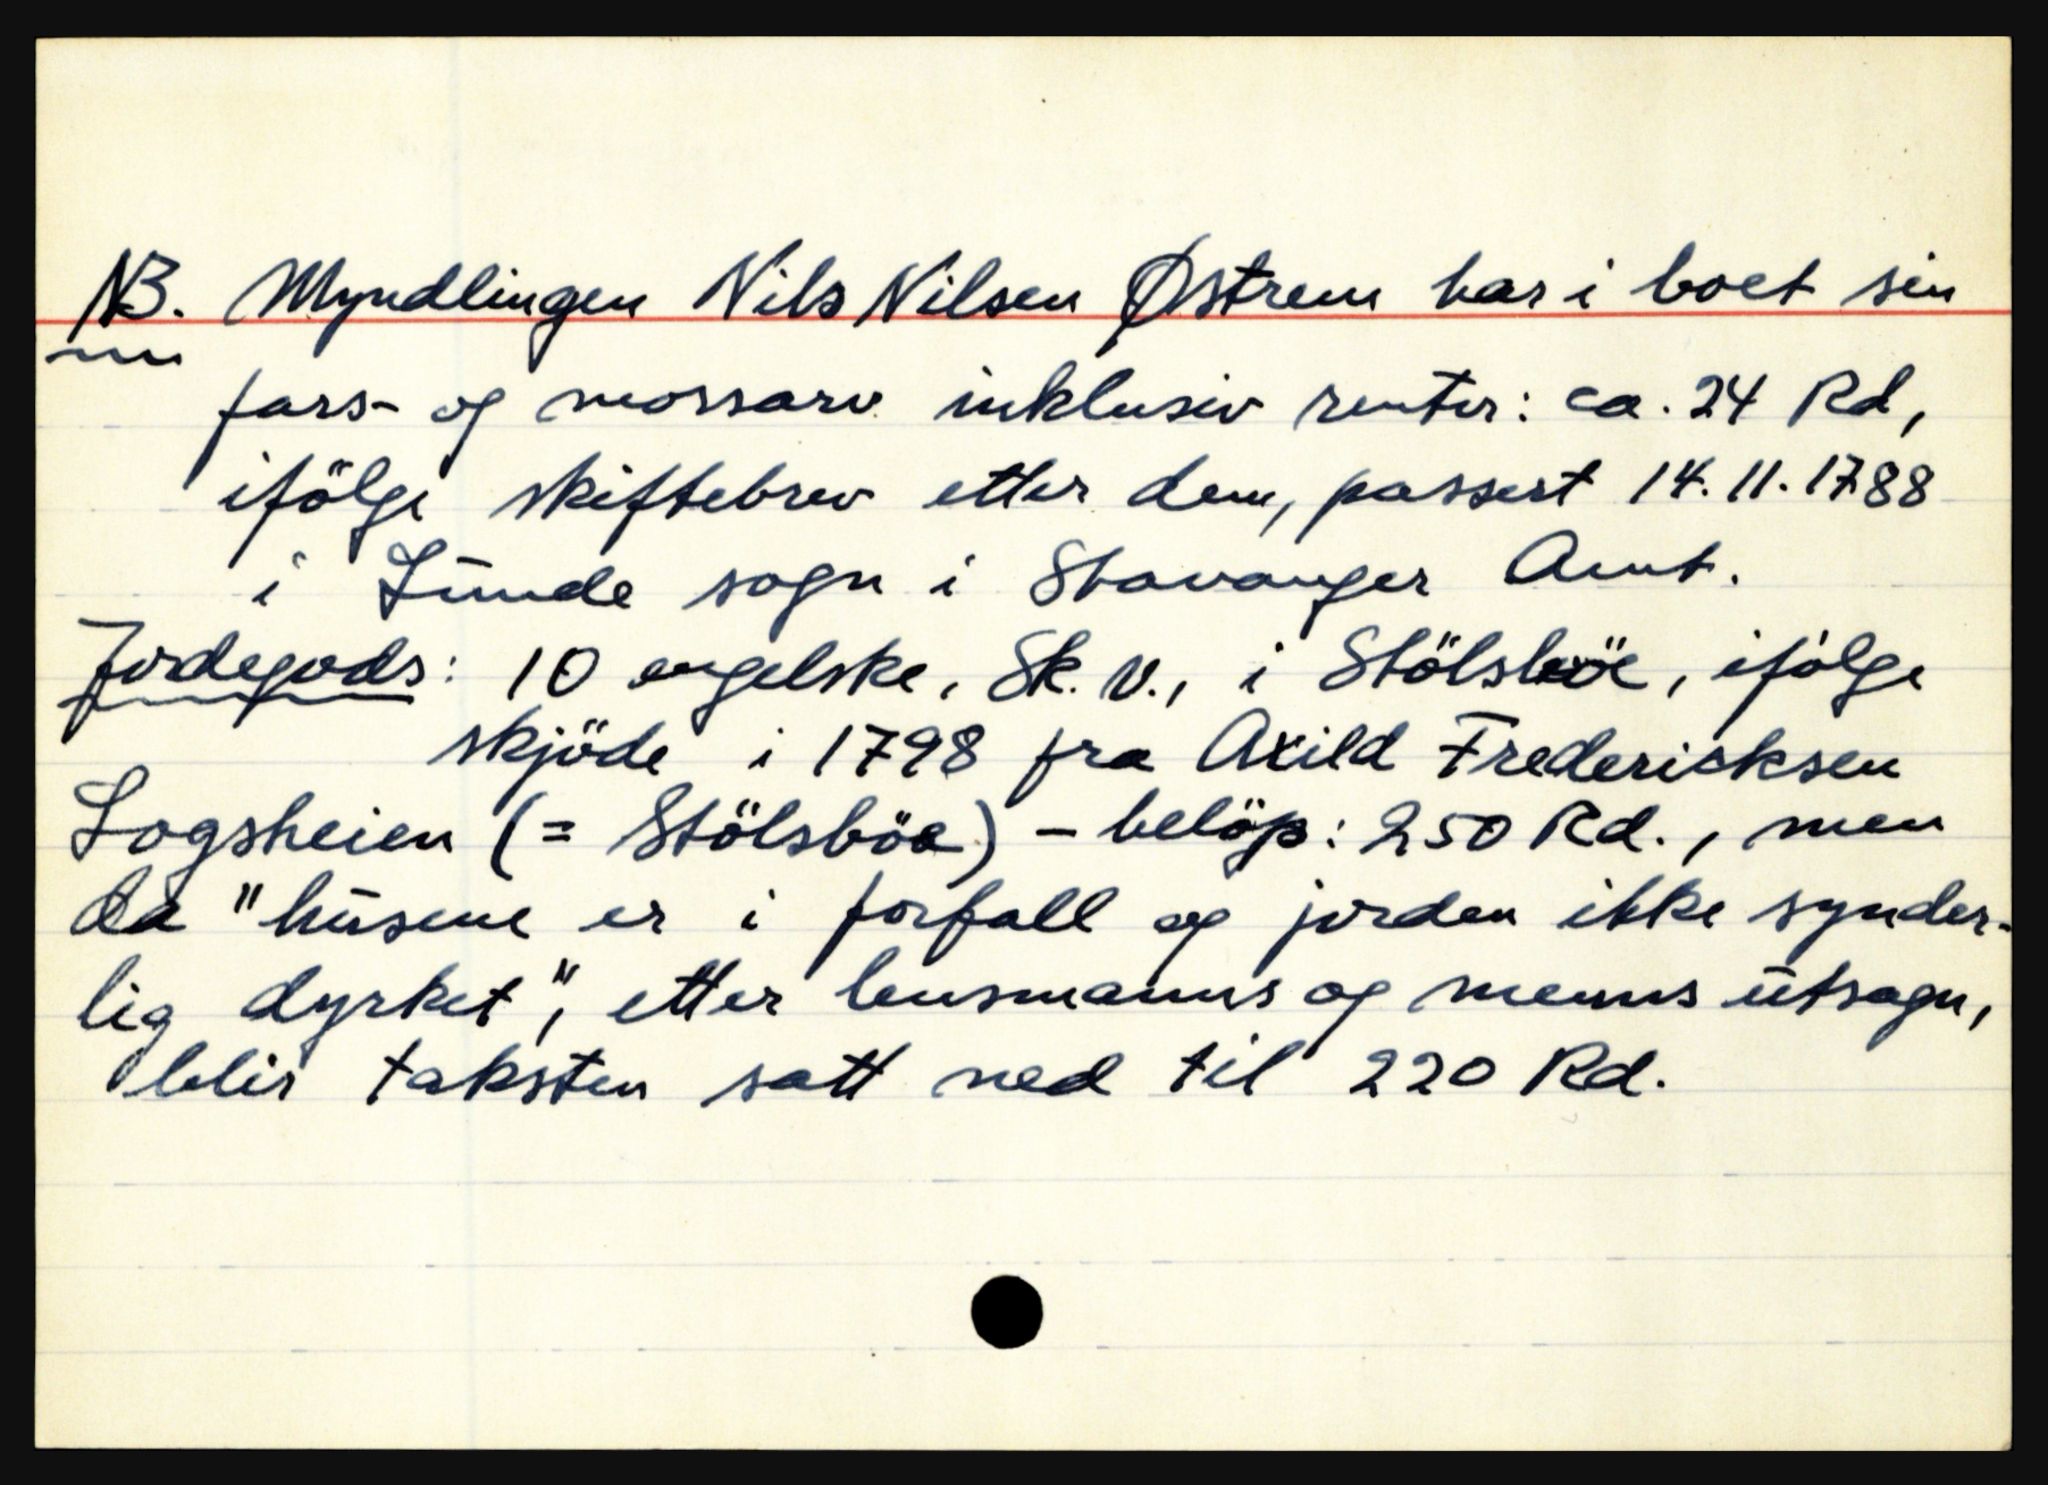 NB. Myndlingen Nils Nilsen Østrem har i boet sin
fars- og morsarv inklusiv renter: ca. 24 Rd,
ifölge skiftebrev etter dem, passert 14.11.1788
i Lunde sogn i Stavanger Amt.
Jordegods: 10 engelske, Sk. V., i Stölsböe, ifölge
skjöde i 1798 fra Axild Fredericksen
Logsheien (= Stölsböe) - belöp: 250 Rd., men
da "husene er i forfall og jorden ikke synder-
lig dyrket", etter lensmanns og menns utsagn,
blir taksten satt ned til 220 Rd.